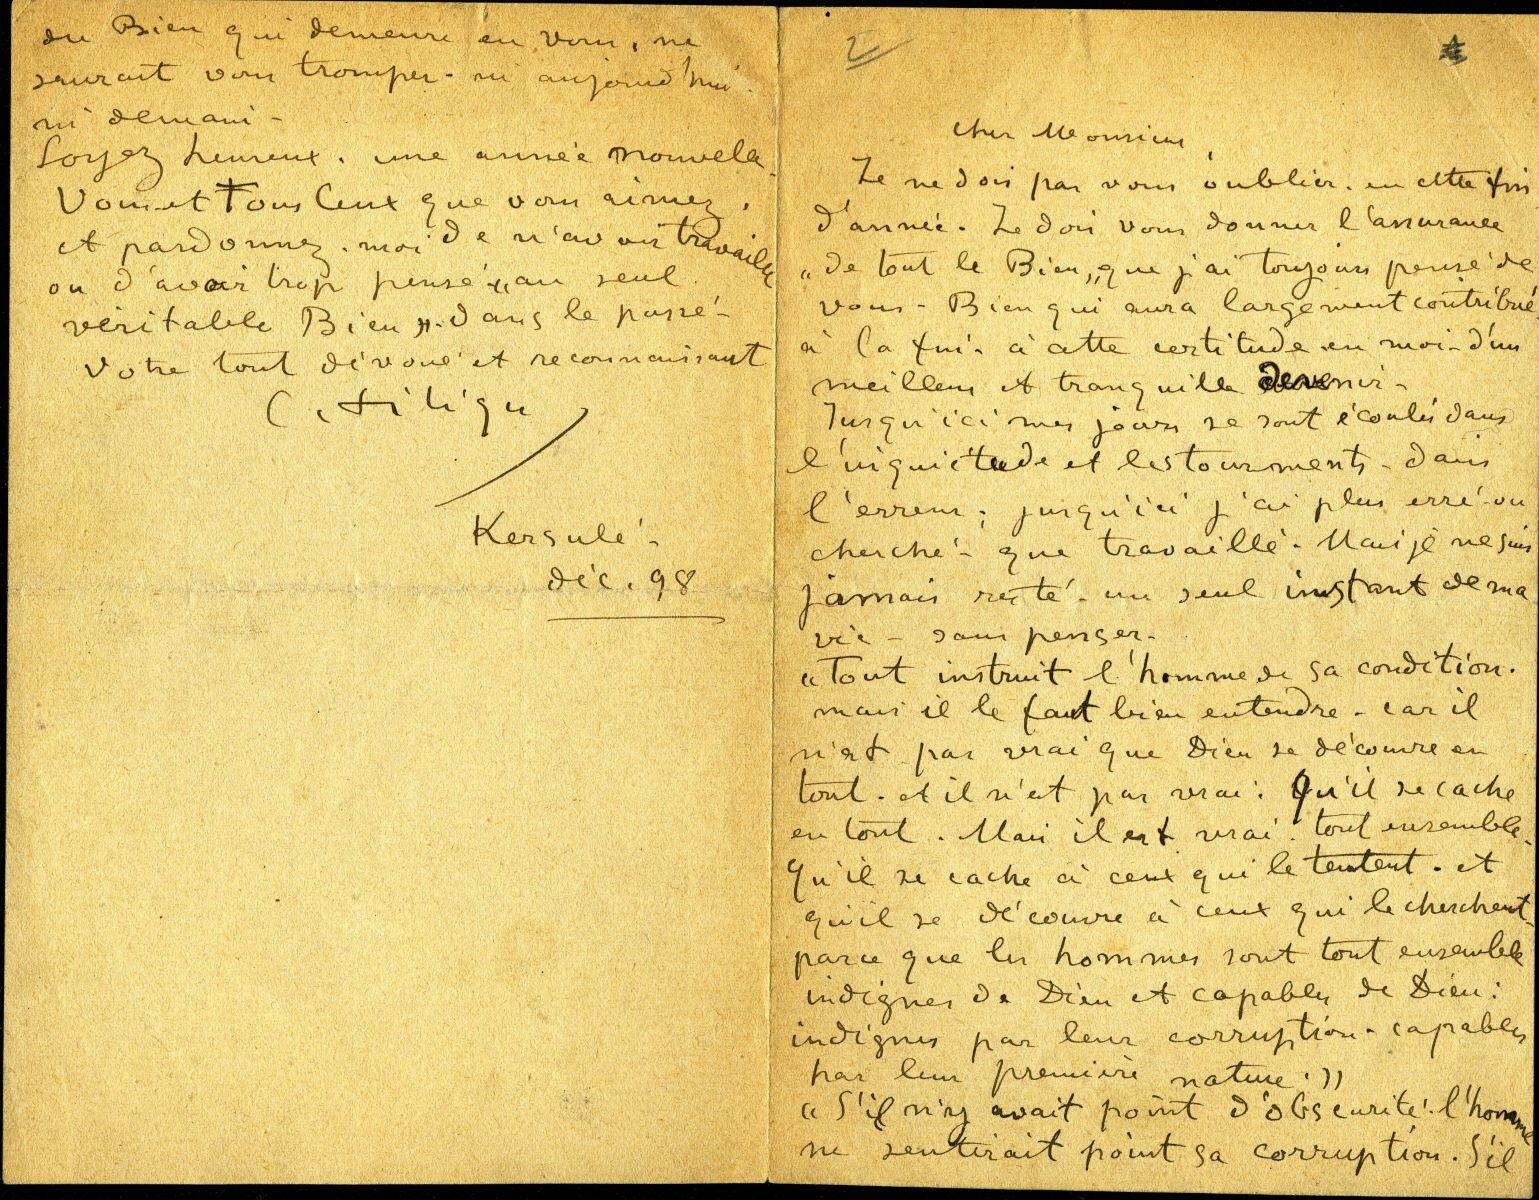 2
cher Monsieur,
Je ne dois pas vous oublier. en cette fin
d'année. Je dois vous donner l'assurance
"de tout le Bien," que j'ai toujours pensé de
vous - Bien qui aura largement contribué
à la fin - à cette certitude en moi - d'un
meilleur et tranquille devenir -
Jusqu'ici mes jours se sont écoulés dans
l'inquiétude et les tourments - dans
l'erreur ; jusqu'ici j'ai plus erré - ou
cherché - que travaillé - Mais je ne suis
jamais resté - un seul instant de ma
vie - sans penser -
« Tout instruit l'homme de sa condition.
mais il le faut bien entendre - car il
n'est pas vrai que Dieu se découvre en
tout - et il n'est pas vrai : Qu'il se cache
en tout . Mais il est vrai . tout ensemble -
qu'il se cache à ceux qui le tentent - et
qu'il se découvre à ceux qui le cherchent -
parce que les hommes sont tout ensemble
indignes de Dieu et capables de Dieu :
indignes par leur corruption - capables
par leur première nature . »
« S'il n'y avait point d'obscurité - l'homme
ne sentirait point sa corruption . S'il
du Bien qui demeure en vous, ne
saurait vous tromper - ni aujourd'hui -
ni demain -
Soyez heureux . une année nouvelle .
Vous et Tous Ceux que vous aimez ,
et pardonnez - moi de n'avoir travaillé
ou d'avoir trop pensé "au seul
véritable Bien". dans le passé -
Votre tout dévoué et reconnaissant
C. Filiger
Kersulé -
déc. 98